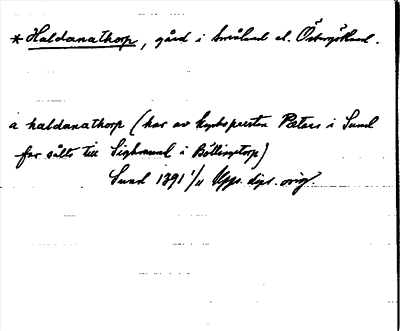 * Haldanathorp, gård i Småland el. Östergötland.
a haldanathorp (har av kyrkopresten Peters i Sund
for sålts till Sighmund i Bøllingxtorp)
Sund 1391 1/11 Upps. dipl. orig.